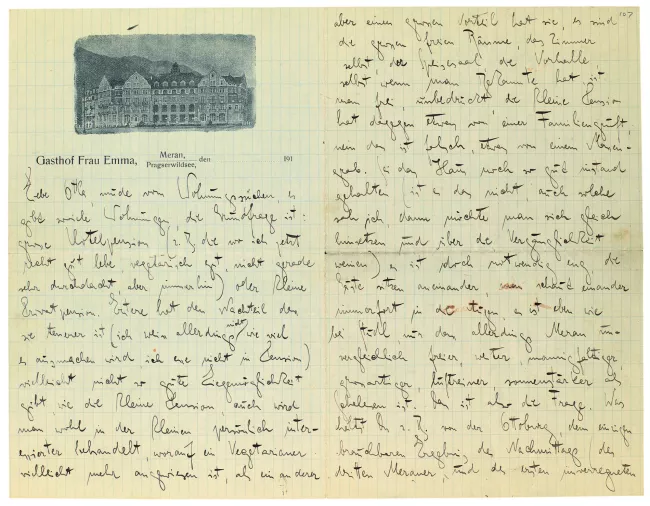 Gasthof Frau Emma, Meran, Pragserwildsee, den 191
Liebe Ottla, müde vom Wohnungssuchen, es
gibt soviele Wohnungen, die Grundfrage ist:
grosse Hotelpension (z. B. die wo ich jetzt
recht gut lebe, vegetarisch gut, nicht gerade
sehr durchdacht, aber immerhin) oder kleine
Privatpension. Erstere hat den Nachteil dass
sie teuerer ist (ich weiss allerdings nicht wie viel
es ausmachen wird ich esse nicht in Pension)
vielleicht nicht so gute Liegemöglichkeit
gibt, wie die kleine Pension, auch wird
man wohl in der kleinen persönlich inter-
essierter behandelt, worauf ein Vegetarianer
vielleicht mehr angewiesen ist, als ein anderer
107
aber einen grossen Vorteil hat sie, es sind
die grossen freien Räume, das Zimmer
selbst, der Speisesaal, die Vorhalle,
selbst wenn man Bekannte hat ist
man frei, unbedrückt, die kleine Pension
hat dagegen etwas von einer Familiengruft,
nein das ist falsch, etwas von einem Massen-
grab. Sei das Haus noch so gut instand
gehalten (ist es das nicht, auch solche
sah ich, dann möchte man sich gleich
hinsetzen und über die Vergänglichkeit
weinen) es ist doch notwendig eng, die
Gäste sitzen aneinander, man schaut einander
immerfort in die Augen, es ist eben wie
bei Stüdl nur dass allerdings Meran un-
vergleichlich freier weiter, mannigfaltiger,
grossartiger, luftreiner, sonnenstärker als
Schelesen ist. Das ist also die Frage. Was
hältst Du z. B. von der Ottoburg, dem einzigen
brauchbaren Ergebnis des Nachmittags (des
dritten Meraner, und des ersten unverregneten